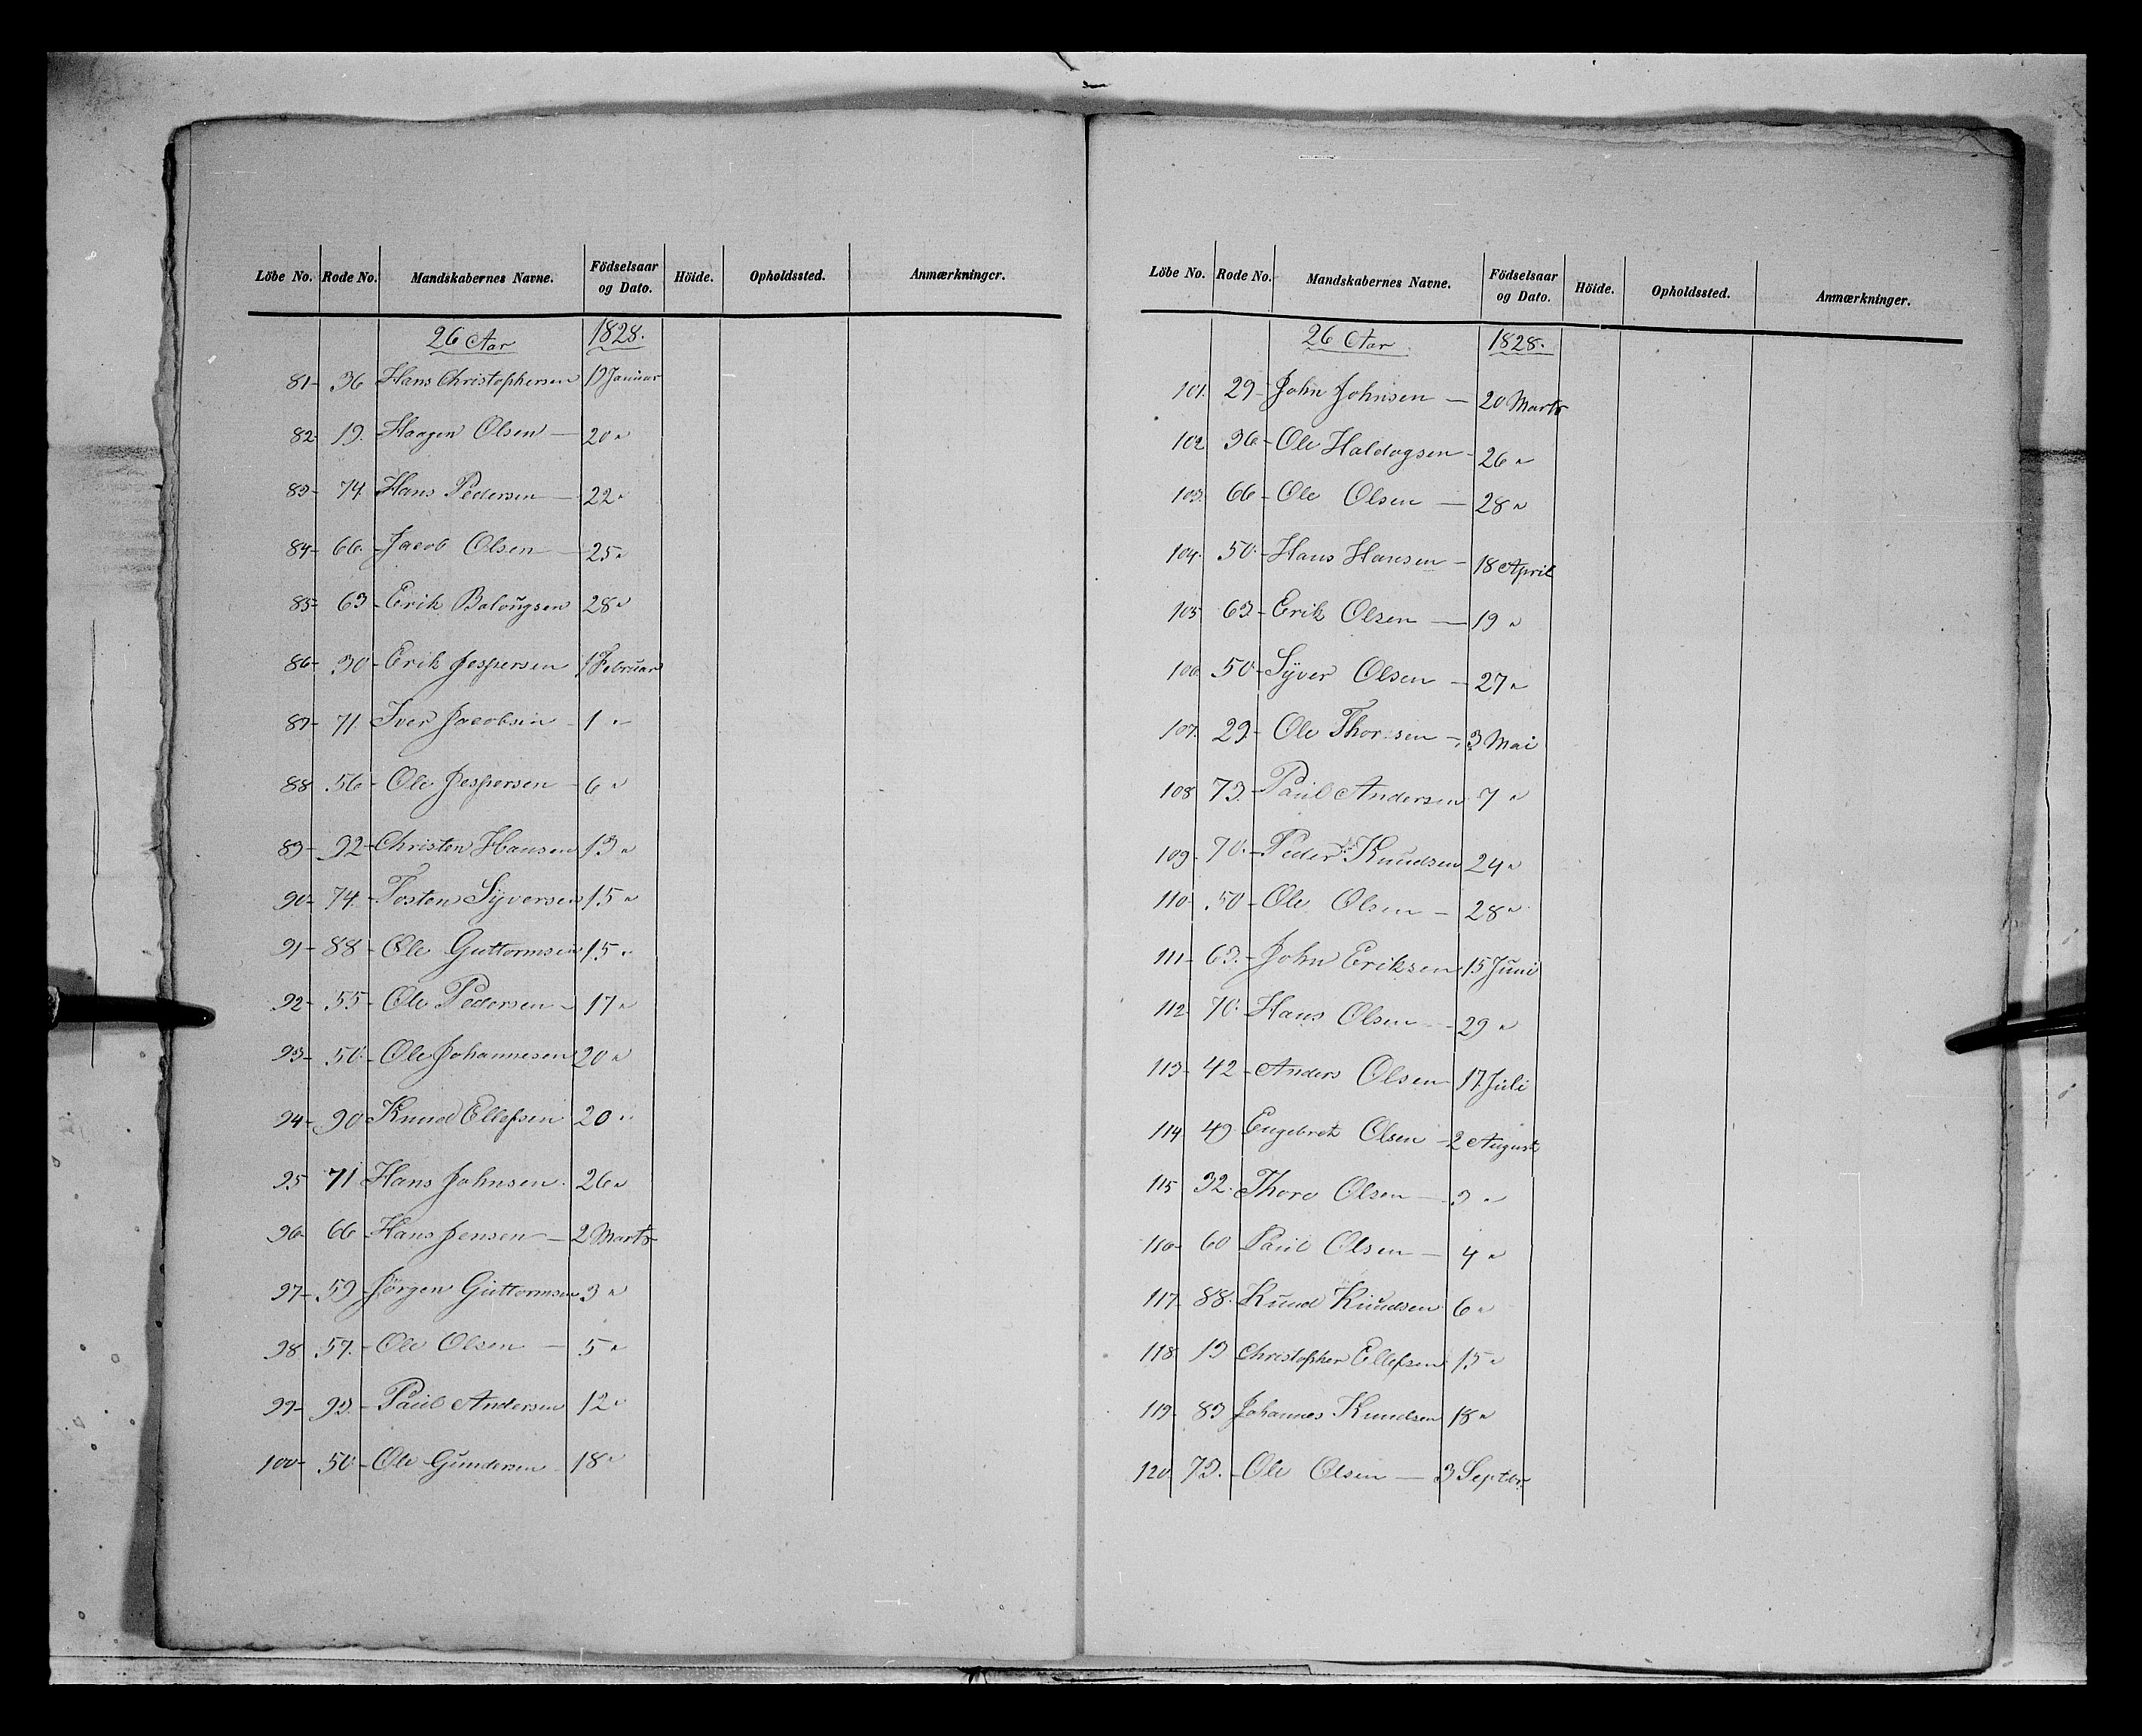 Löbe No. Rode No. Mandskabernes Navne. Födselsaar og Dato. Höide. Opholdssted. Anmærkninger.
26 Aar 1828.
81- 36 Hans Christophersen 19 Januar
82- 19. Haagen Olsen — 20 "
83- 74. Hans Pedersen — 22 "
84- 66. Jacob Olsen — 25 "
85- 63- Erik Balougsen 28 "
86- 30- Erik Jespersen 1 Februar
87- 71. Iver Jacobsen - 1 "
88 56- Ole Jespersen - 6 "
89- 92- Christen Hansen 13 "
90- 74.- Tosten Syversen 15 "
91- 88- Ole Guttormsen 15 "
92- 55- Ole Pedersen - 17 "
93- 50- Ole Johannesen 20 "
94- 90 Knud Ellefsen 20 "
95 71 Hans Johnsen 26 "
96- 66 Hans Jensen — 2 Marts
97- 59 Jörgen Guttormsen 3 "
98 57.- Ole Olsen — 5 "
99- 93.- Paul Andersen 12 "
100- 50- Ole Gundersen 18 "
Löbe No. Rode No. Mandskabernes Navne. Födselsaar og Dato. Höide. Opholdssted. Anmærkninger.
26 Aar 1828.
101. 29- John Johnsen — 20 Marts
102 36- Ole Haldogsen - 26 "
103. 66- Ole Olsen — 28 "
104. 50- Hans Hansen - 18 April
105 63- Erik Olsen — 19 "
106. 50- Syver Olsen - 27 "
107. 29.- Ole Thorsen - 3 Mai
108 73.- Paul Andersen 7 "
109. 70.- Peder Knudsen 24 "
110- 50- Ole Olsen — 28 "
111- 63.- John Eriksen 15 Juni
112 70. Hans Olsen - 29 "
113- 42- Anders Olsen 17 Juli
114 49 Engebret Olsen - 2 August
115 32. Thore Olsen — 3 "
116- 60 Paul Olsen — 4 "
117. 88. Knud Knudsen 6 "
118. 19 Christopher Ellefsen 15 "
119- 83 Johannes Knudsen 18 "
120 73.- Ole Olsen — 3 Septbr.